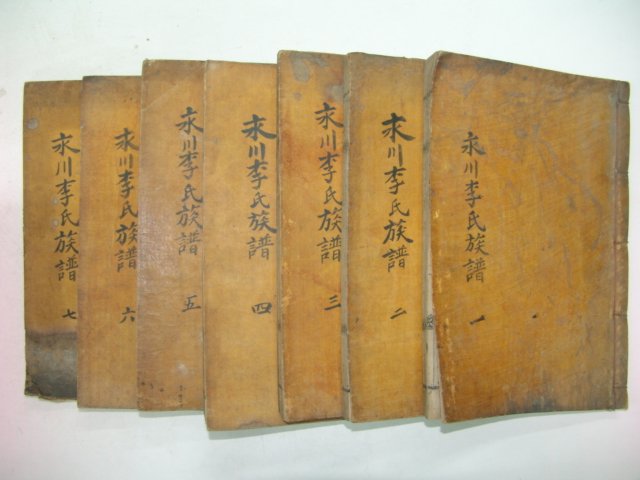 永川李氏族譜 一
永川李氏族譜 二
永川李氏族譜 三
永川李氏族譜 四
永川李氏族譜 五
永川李氏族譜 六
永川李氏族譜 七